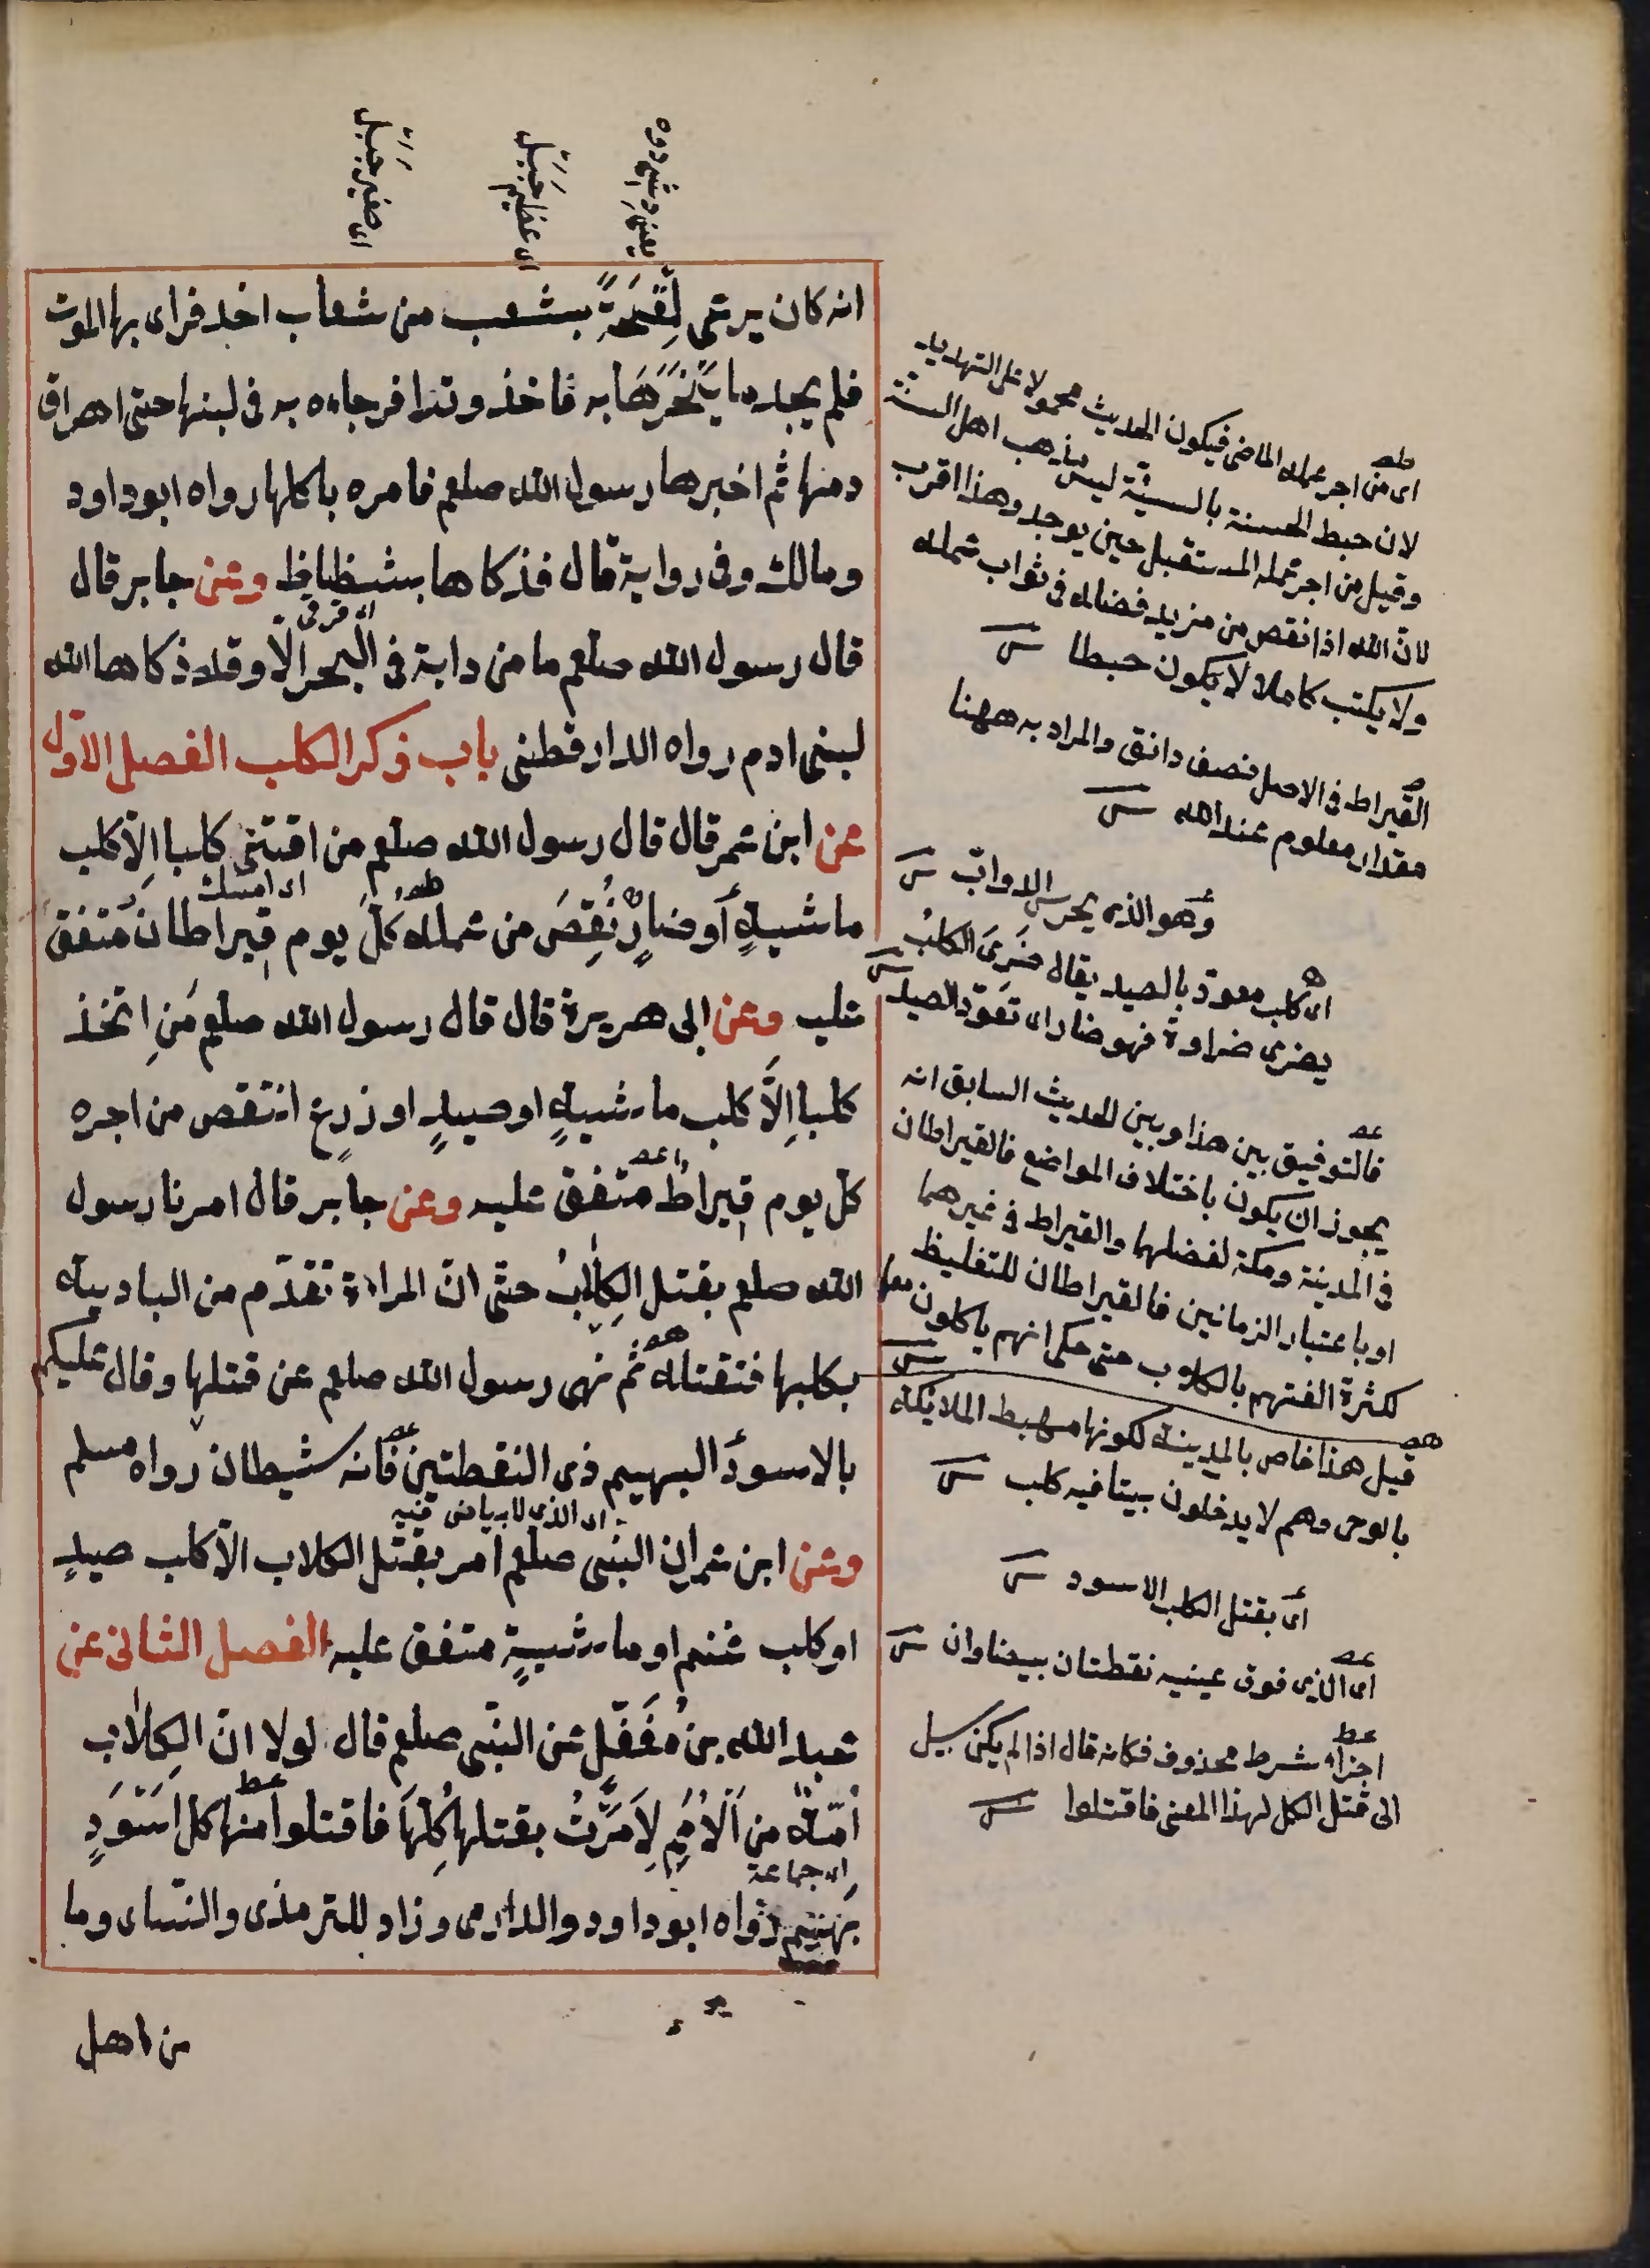 اى صغير جبيل
اى عظيم جبل
يعنى دوه
انه كان يرعى لِقْحَةً بشعب من شعاب احد فراى بها الموت
فلم يجد ما يَنْحَرُهَا به فاخذ وتدا فوجاءه به فى لبتها حتى اهراق
دمها ثم اخبر رسول الله صلعم فامره باكلها رواه ابو داود
ومالك وفى رواية قال فذكاها بشظاظٍ وعن جابر قال
قال رسول الله صلعم ما من دابة فى البحر الا وقد ذكاها الله
لبنى ادم رواه الدارقطنى باب ذكر الكلب الفصل الاوّل
عن ابن عمر قال قال رسول الله صلعم من اقتنى كلبا اِلّا كلب
اى امسك
ماشيةٍ أو ضارٍ نُقِصَ من عمله كُلَّ يوم قِيراطان متفق
عليه وعن ابى هريرة قال قال رسول الله صلعم مَنِ اتخذ
كلبا اِلَّا كلب ماشيةٍ او صيدٍ او زرعٍ انتقص من اجره
كل يوم قِيراطٌ متفق عليه وعن جابر قال امرنا رسول
الله صلعم بقتل الكِلابُ حتّى انّ المراة تقدّم من البادية
بكلبها فنقتله ثم نهى رسول الله صلعم عن قتلها وقال عليكم
بالاسود البهيم ذى النقطتين فانه شيطان رواه مسلم
اى الذى لا بياض فيه
وعن ابن عمر ان النبى صلعم امر بقتل الكلاب الّا كلب صيدٍ
او كلب غنم او ماشيةٍ متفق عليه الفصل الثانى عن
عبد الله بن مُغَفَّلٍ عن النبّى صلعم قال لولا انّ الكِلاب
أمّة من الْاُمَمِ لَاَمَرْتُ بقتلها كُلِّهَا فاقتلوا منها كل اَسْوَدٍ
اى جماعة
بَهِيمٍ رواه ابو داود والدارمى وزاد الترمذى والنسّاى وما
من اهل
اى من اجر عمله الماضى فيكون الحديث محمولا على التهديد
لان حبط الحسنة بالسيئة ليس مذهب اهل السنة
وقيل من اجر عمله المستقبل حين يوجد وهذا اقرب
لانّ الله اذا نقص من مزيد فضله فى ثواب عمله
ولا يكتب كاملا لا يكون حبطا
القيراط فى الاصل نصف دانق والمراد به ههنا
مقدار معلوم عند الله
وهو الذى يحرس الدوابّ
اى كلب معود بالصيد يقال ضَرِىَ الكلبُ
يضرى ضراوة فهو ضار اى تعوّد الصيد
فالتوفيق بين هذا وبين الحديث السابق انه
يجوز ان يكون باختلاف المواضع فالقيراطان
فى المدينة ومكة لفضلهما والقيراط فى غيرهما
او باعتبار الزمانين فالقيراطان للتغليظ
لكثرة الفتهم بالكلاب حتى حكى انهم ياكلون معها
قيل هذا خاص بالمدينة لكونها مهبط الملائكة
بالوحى وهم لا يدخلون بيتا فيه كلب
اى بقتل الكلب الاسود
اى الذى فوق عينيه نقطتان بيضاوان
اجزاء شرط محذوف فكانه قال اذا لم يكن سبيل
الى قتل الكل لهذا المعنى فاقتلوا